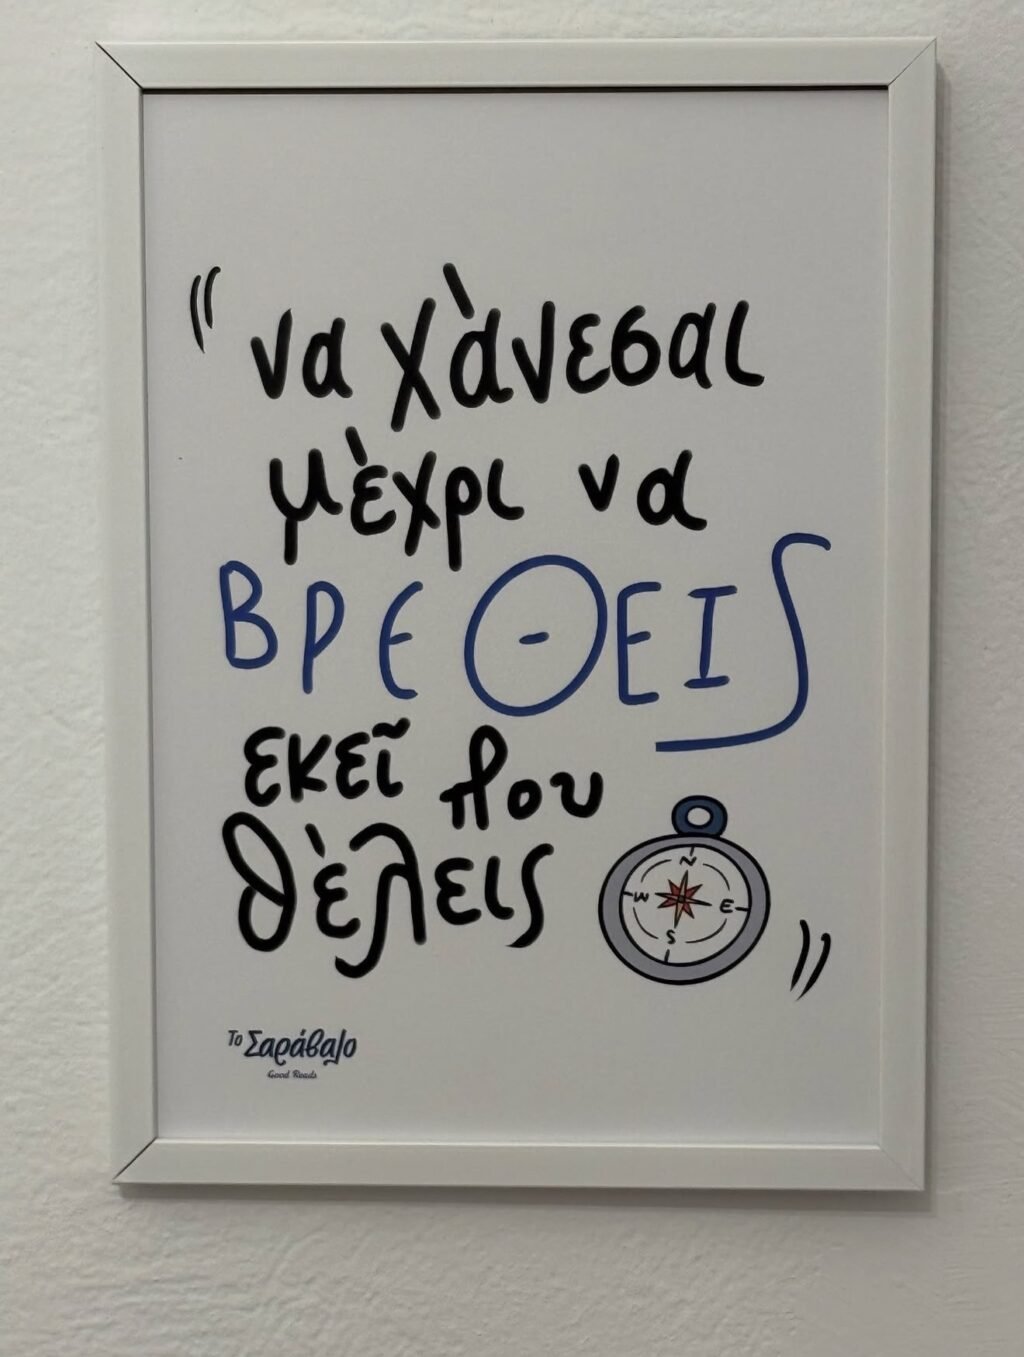 "να χὰνεσαι
μὲχρι να
ΒΡΕΘΕΙS
εκεῖ που
θὲλεις"
N
W E
S
Το Σαράβαλο
Good Reads